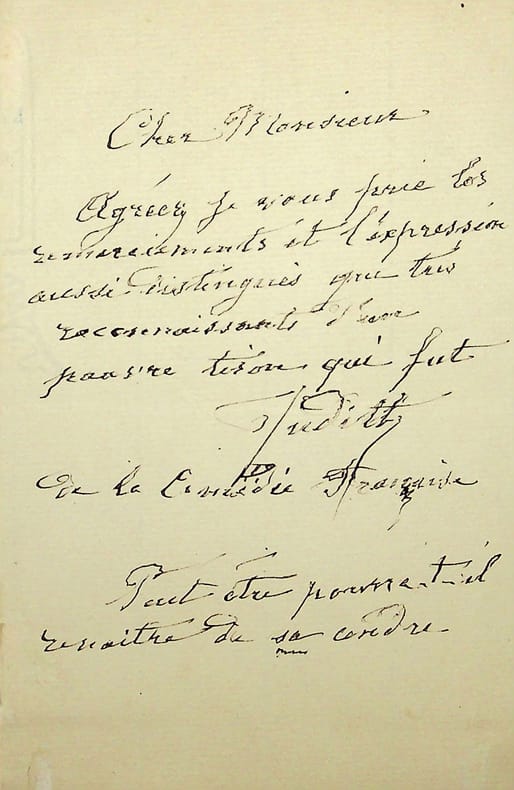 Cher Monsieur
Agréez je vous prie les
remerciements et l'expression
aussi distinguès que très
reconnaissants d'un
pauvre tison qui fut
Judith
de la Comédie Française
Peut être pourra-t-il
renaitre de sa cendre